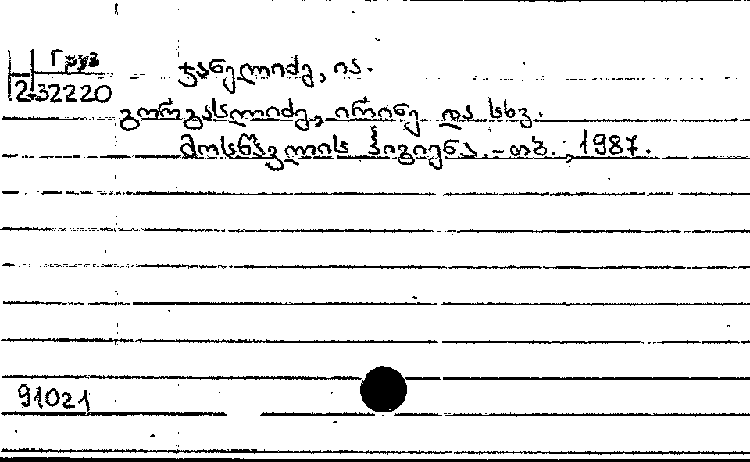 Груз
2-32220
ჯანელიძე, ია.
გორგასლიძე, ირინე და სხვ.
მოსწავლის ჰიგიენა. - თბ., 1987.
91021